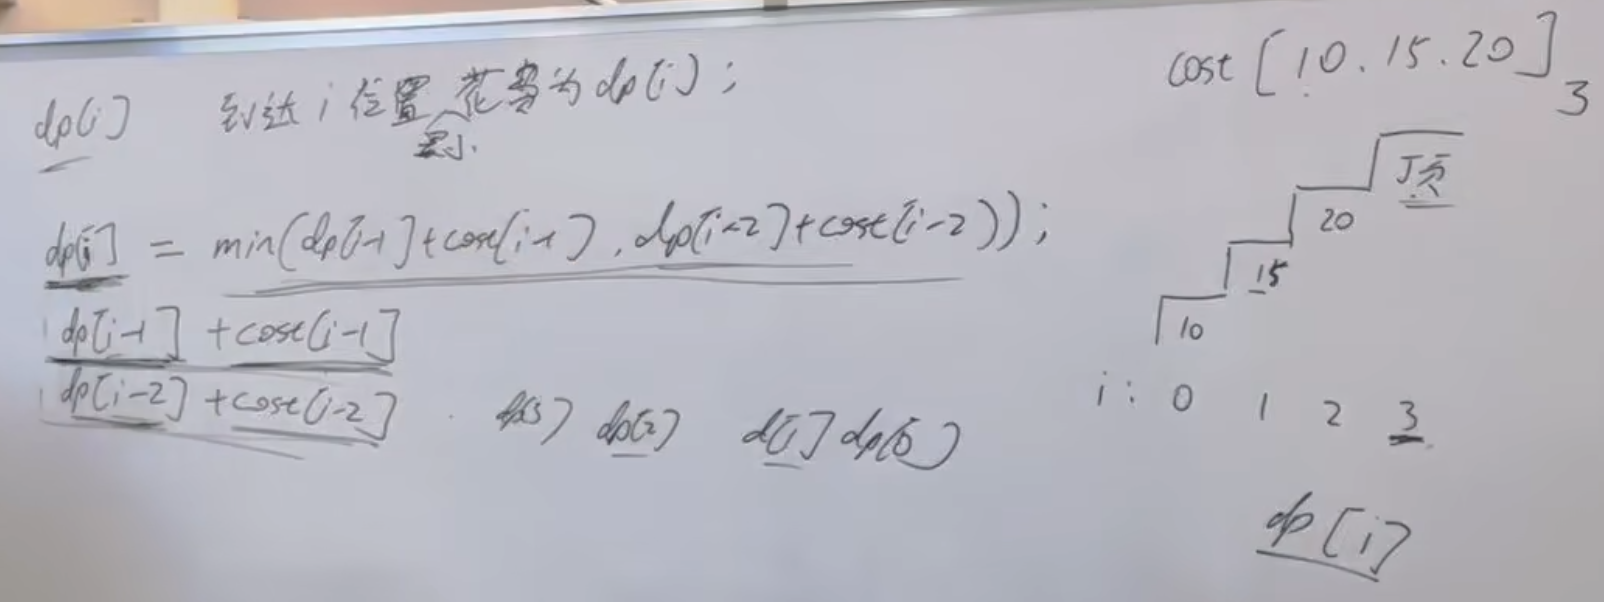 dp[i] 到达 i 位置 最小 花费为 dp[i];
dp[i] = min(dp[i-1]+cost[i-1], dp[i-2]+cost[i-2]);
dp[i-1] +cost[i-1]
dp[i-2] +cost[i-2]
dp[3] dp[2] d[1] dp[0]
cost [10.15.20] 3
顶
20
15
10
i: 0 1 2 3
dp[i]